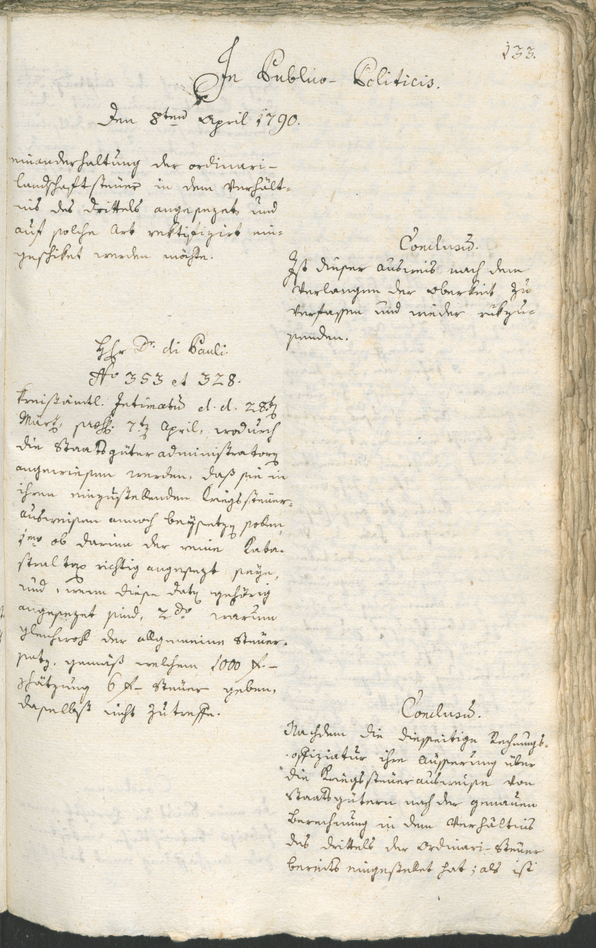 133.
In Publico-Politicis.
Den 8ten April 1790.
einanderhaltung der ordinari-
landschaftsteuer in dem Verhält-
nis des drittels angesezet, und
auf solche Art rektifizirt ein-
geschiket werden möchte.
Conclusum.
Ist dieser Ausweis nach dem
Verlangen der Oberkeit zu
verfassen und wieder rükzu-
senden.
Hhr Dr. di Pauli.
No 353 et 328.
Kreisämtl. Intimatum d. d. 28tn
März, 7tn April, wodurch
die Staatsgüteradministratorn
angewiesen werden, daß sie in
ihren einzustellenden kriegssteuer-
ausweisen annoch beysetzen sollen
1mo ob darinn der reine Kata-
stral richtig angesezt seye,
und, wenn diese Data gehörig
angesezet sind, 2do warum
gleichwohl der allgemeine Steuer-
satz, gemäß welchem 1000 f-
schätzung 6 f- Steuer geben,
daselbst nicht zutreffe.
Conclusum.
Nachdem die diesseitige Rechnungs-
offiziatur ihre Äusserung über
die Kriegssteuerausweise von
Staatsgütern nach der genauen
Berechnung in dem Verhältnis
des drittels der Ordinari-Steuer
bereits eingestellet hat; als ist